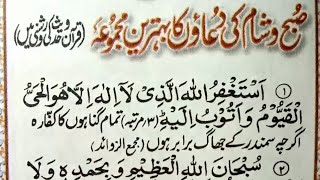 صبح و شام کی دعاؤں کا بہترین مجموعہ
(قرآن و حدیث کی روشنی میں)
① اَسْتَغْفِرُ اللهَ الَّذِیْ لَآ اِلٰهَ اِلَّا هُوَ الْحَیُّ
الْقَیُّوْمُ وَ اَتُوْبُ اِلَیْهِ (۳ مرتبہ) تمام گناہوں کا کفارہ
اگرچہ سمندر کے جھاگ برابر ہوں (مجمع الزوائد)
② سُبْحَانَ اللهِ الْعَظِیْمِ وَ بِحَمْدِهٖ وَ لَا